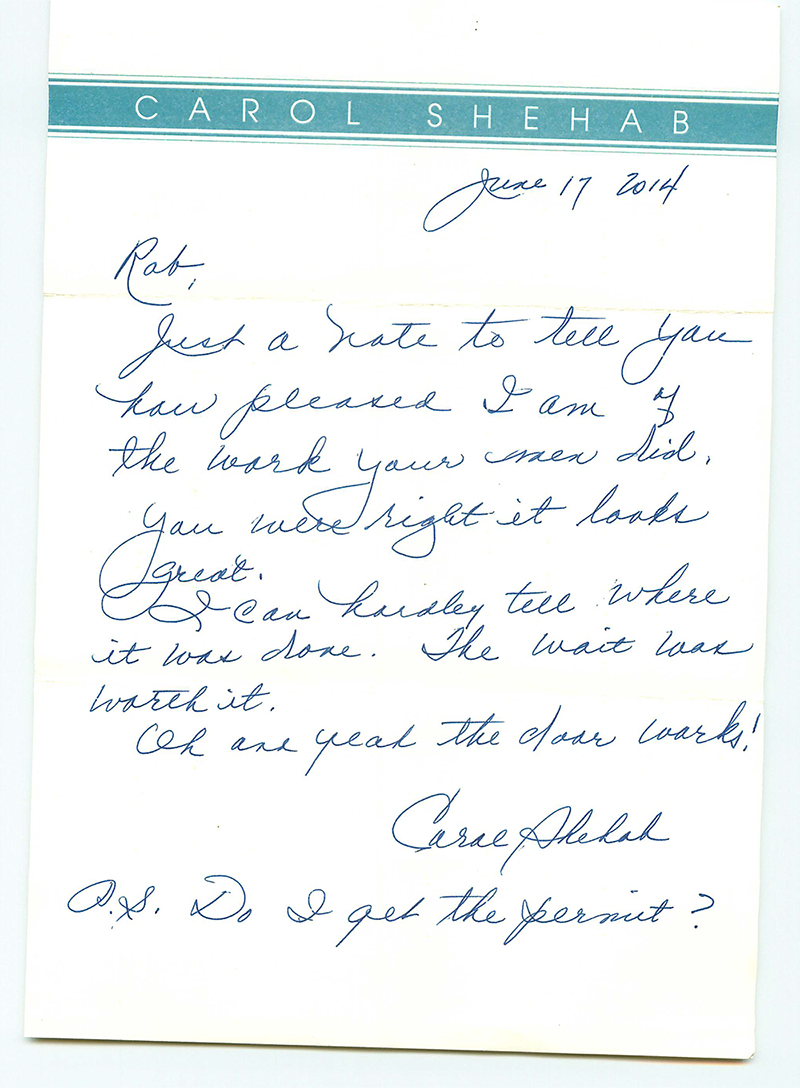 CAROL SHEHAB
June 17 2014
Rob,
Just a note to tell you
how pleased I am of
the work your men did.
You were right it looks
great.
I can hardley tell where
it was done. The wait was
worth it.
Oh and yeah the door works!
Carol Shehab
P.S. Do I get the permit?